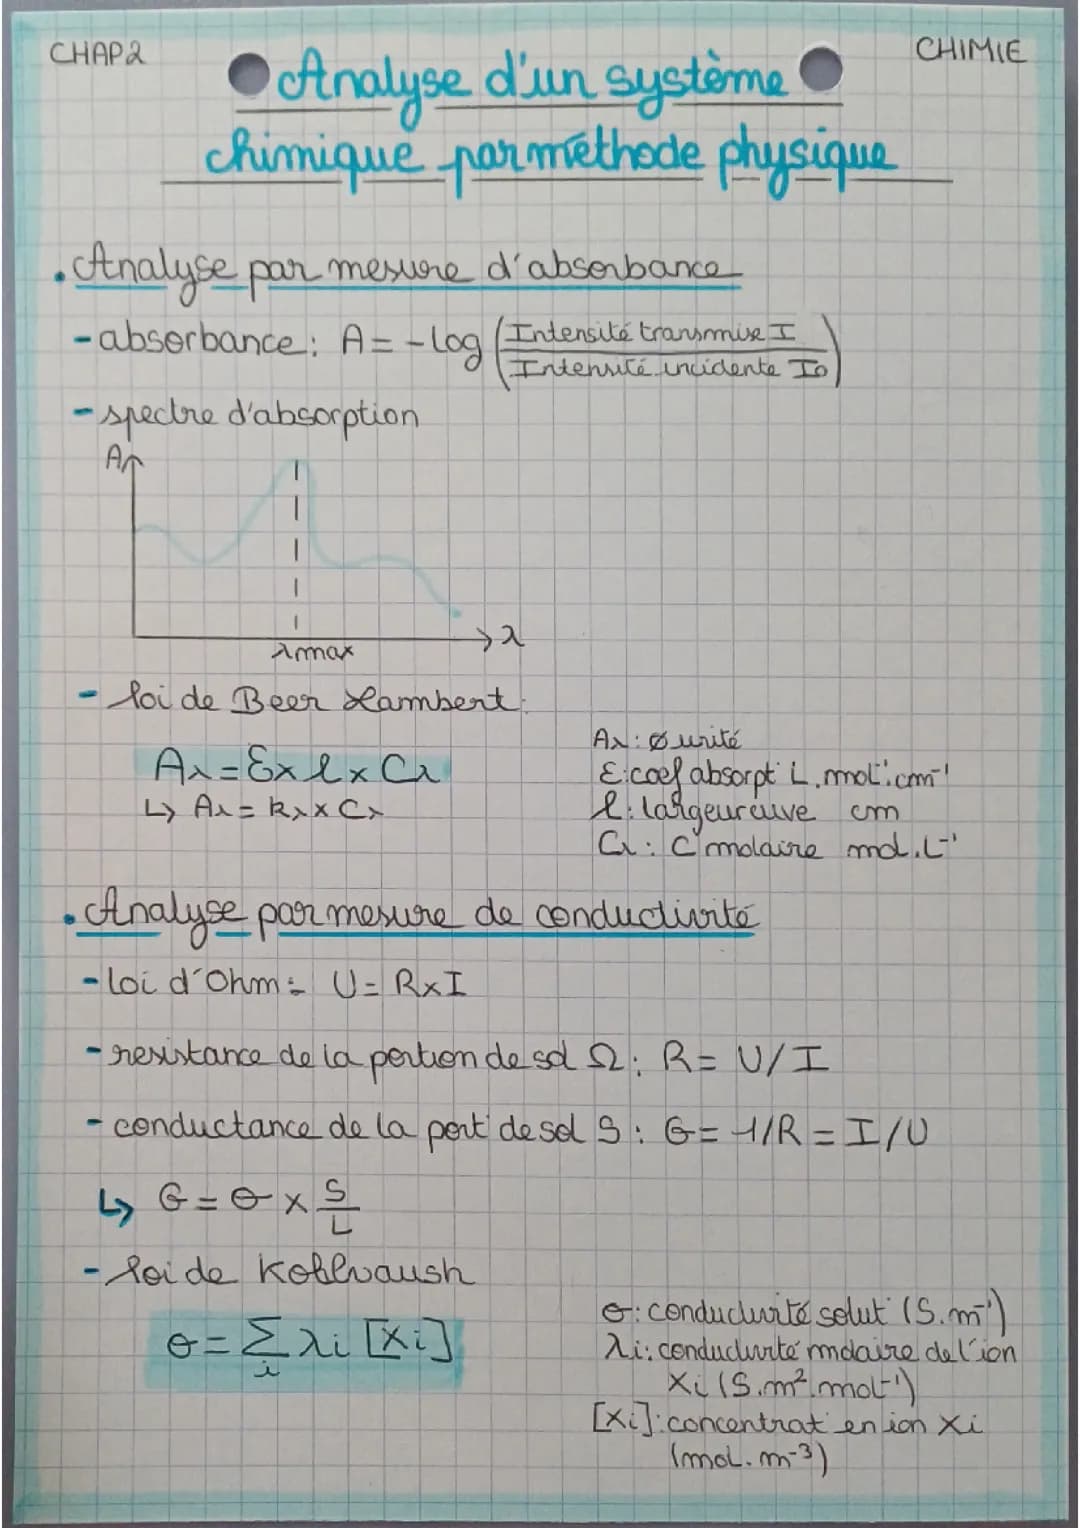 CHAP2
CHIMIE
Analyse d'un système
chimique par méthode physique
. Analyse par mesure d'absorbance
- absorbance : A = -log (Intensité transmise I / Intensité incidente I0)
- spectre d'absorption
A
λ
λmax
- loi de Beer Lambert :
Aλ = Ɛ x l x Cλ
↳ Aλ = kλ x Cλ
Aλ : ∅ unité
Ɛ : coef absorpt° L.mol⁻¹.cm⁻¹
l : largeur cuve cm
Cλ : C° molaire mol.L⁻¹
. Analyse par mesure de conductivité
- loi d'Ohm : U = R x I
- resistance de la portion de sol Ω : R = U/I
- conductance de la port° de sol S : G = 1/R = I/U
↳ G = σ x S/L
- loi de Kohlraush
σ = Σ i λi [Xi]
σ : conductivité solut° (S.m⁻¹)
λi : conductivité molaire de l'ion
Xi (S.m².mol⁻¹)
[Xi] : concentrat° en ion Xi
(mol.m⁻³)